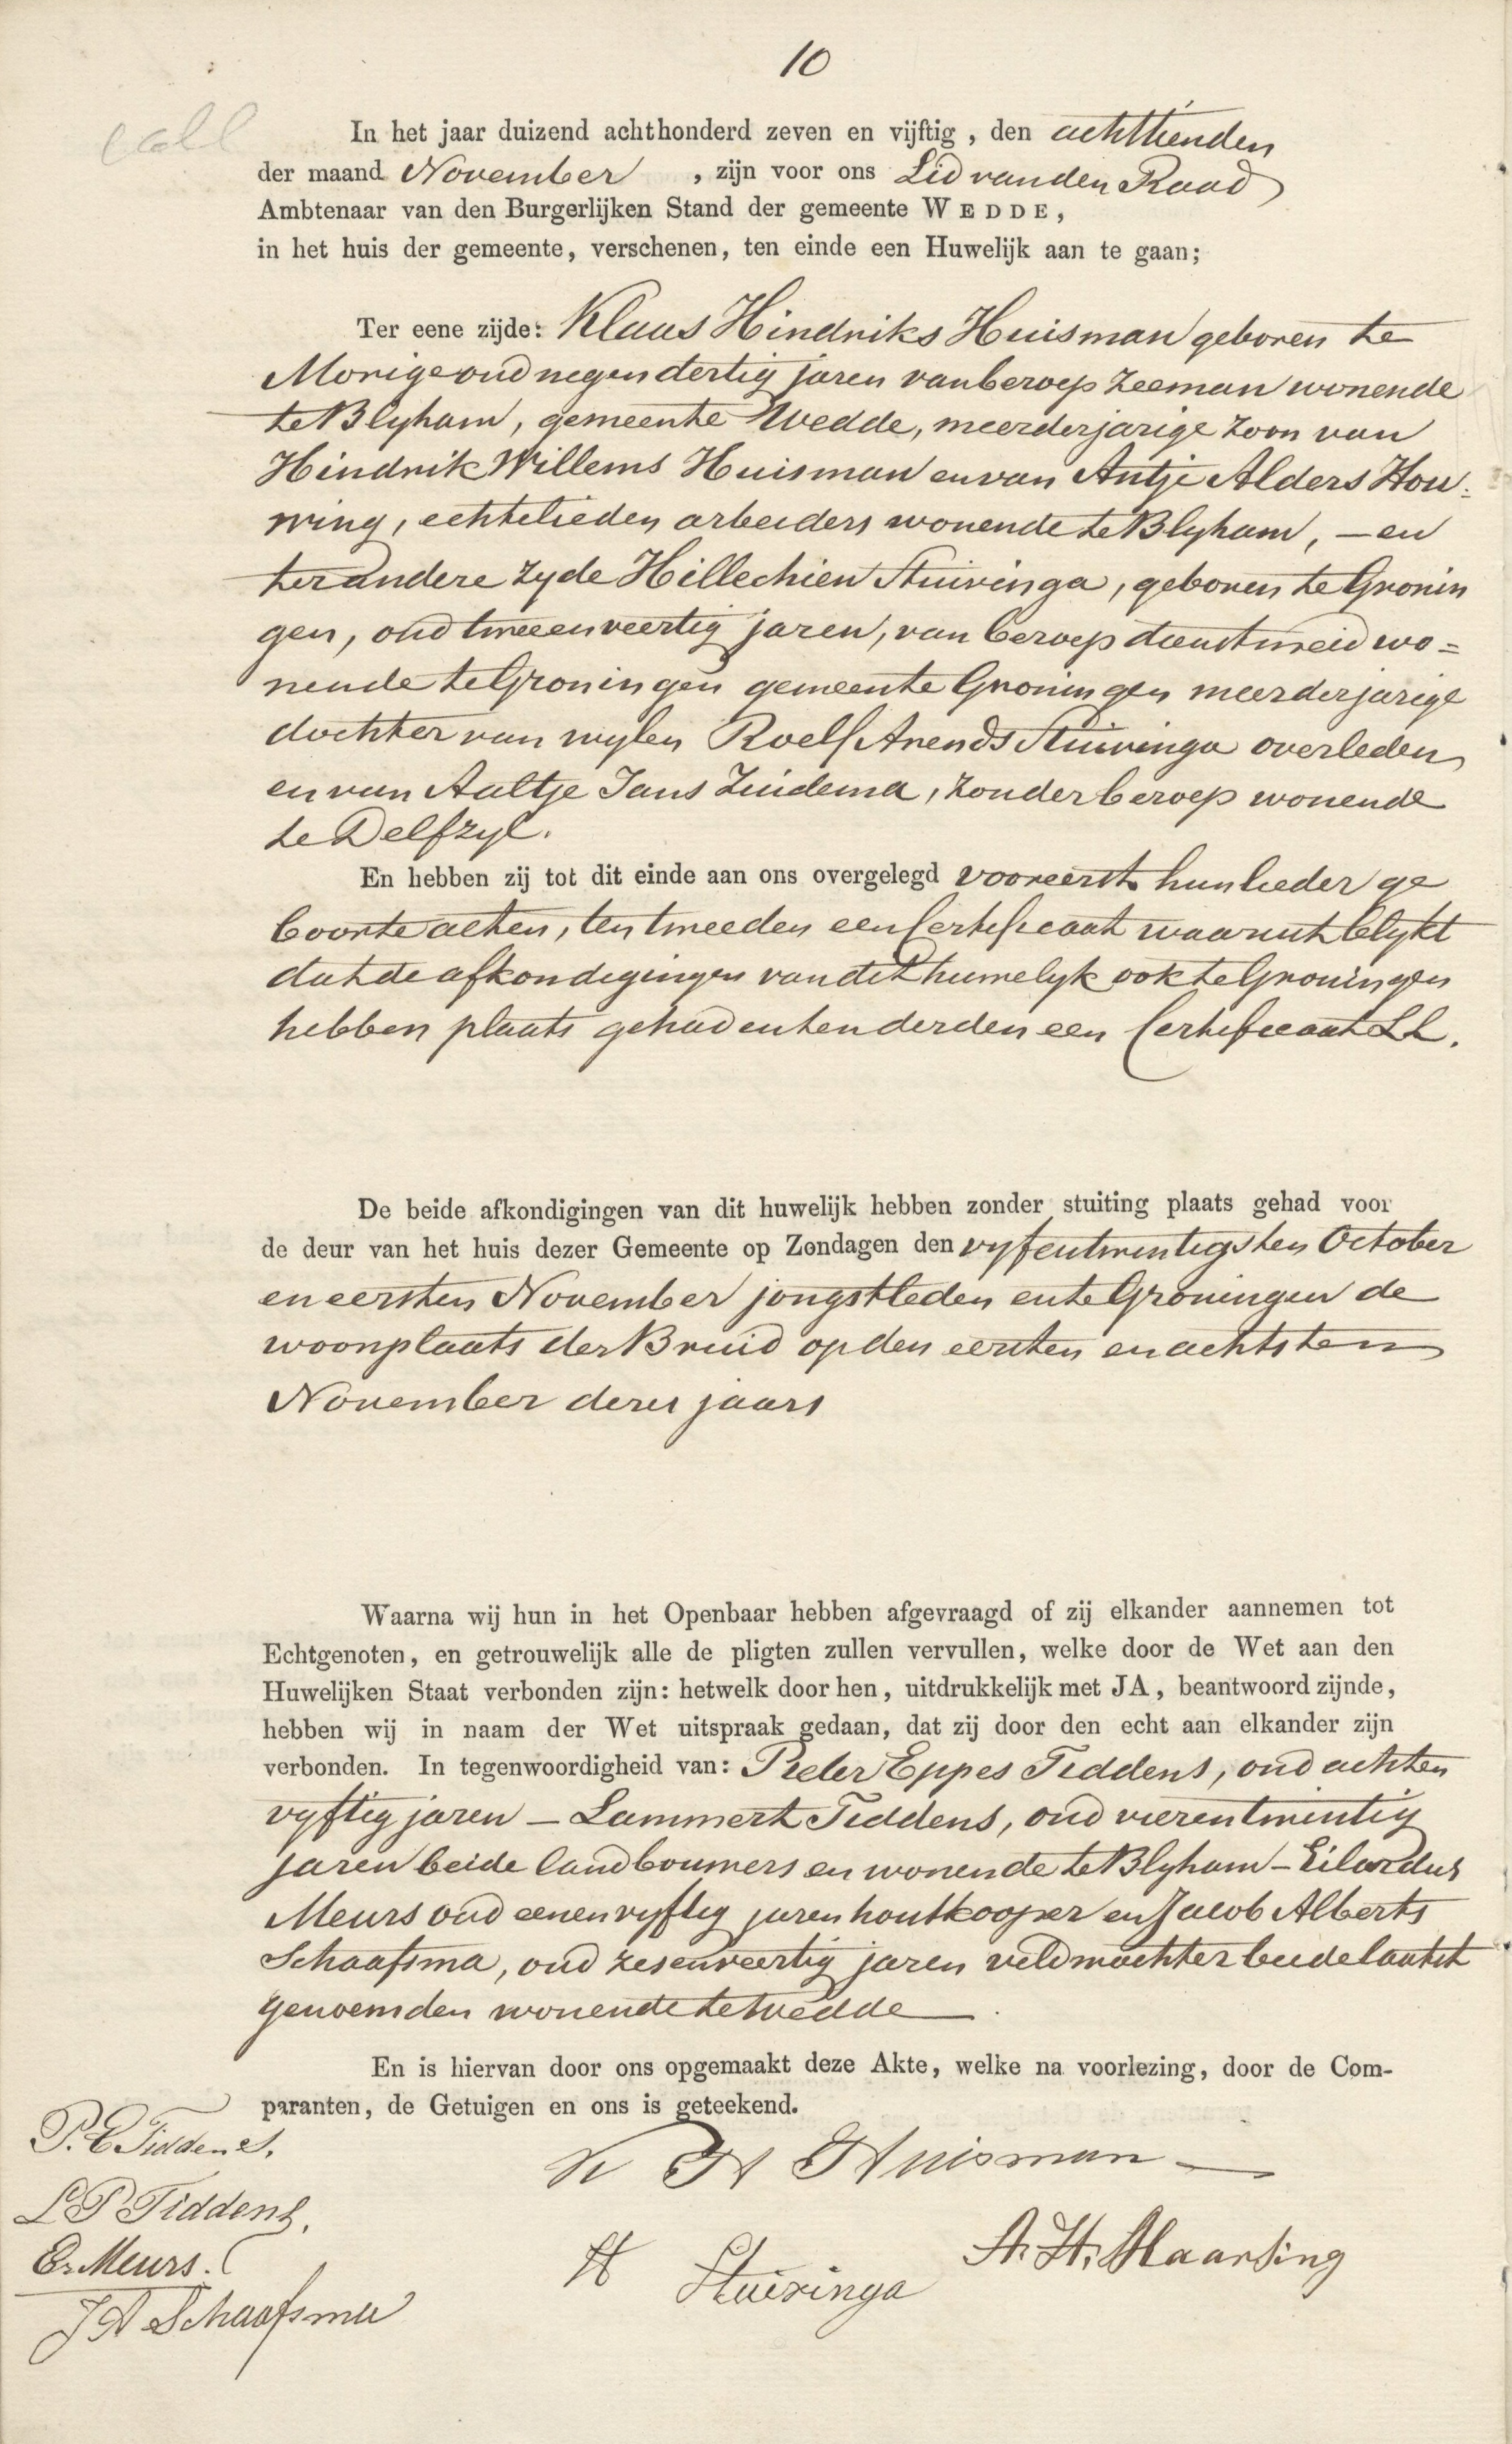 10
coll
In het jaar duizend achthonderd zeven en vijftig, den achttienden
der maand November, zijn voor ons Lid van den Raad
Ambtenaar van den Burgerlijken Stand der gemeente WEDDE,
in het huis der gemeente, verschenen, ten einde een Huwelijk aan te gaan;
Ter eene zijde: Klaas Hindriks Huisman geboren te
Morige oud negendertig jaren van beroep Zeeman wonende
te Blyham, gemeente Wedde, meerderjarige zoon van
Hindrik Willems Huisman en van Antje Alders Hou-
wing, echtelieden arbeiders wonende te Blyham, — en
ter andere zyde Hillechien Stuivinga, geboren te Gronin
gen, oud tweeenveertig jaren, van beroep dienstmeid wo=
nende te Groningen gemeente Groningen meerderjarige
dochter van wylen Roelf Arends Stuivinga overleden
en van Aaltje Jans Zuidema, zonder beroep wonende
te Delfzyl.
En hebben zij tot dit einde aan ons overgelegd vooreerst hunlieder ge
boorte acten, ten tweeden een Certificaat waaruit blykt
dat de afkondigingen van dit huwelyk ook te Groningen
hebben plaats gehad en ten derden een Certificaat LL.
De beide afkondigingen van dit huwelijk hebben zonder stuiting plaats gehad voor
de deur van het huis dezer Gemeente op Zondagen den vyfentwintigsten October
en eersten November jongstleden en te Groningen de
woonplaats der Bruid op den eersten en achtsten
November dezes jaars
Waarna wij hun in het Openbaar hebben afgevraagd of zij elkander aannemen tot
Echtgenoten, en getrouwelijk alle de pligten zullen vervullen, welke door de Wet aan den
Huwelijken Staat verbonden zijn: hetwelk door hen, uitdrukkelijk met JA, beantwoord zijnde,
hebben wij in naam der Wet uitspraak gedaan, dat zij door den echt aan elkander zijn
verbonden. In tegenwoordigheid van: Pieter Eppes Tiddens, oud achten
vyftig jaren — Lammert Tiddens, oud vierentwintig
jaren beide landbouwers en wonende te Blyham — Eilardus
Meurs oud eenenvyftig jaren houtkooper en Jacob Alberts
Schaafsma, oud zesenveertig jaren veldwachter beide laatst
genoemden wonende te Wedde
En is hiervan door ons opgemaakt deze Akte, welke na voorlezing, door de Com-
paranten, de Getuigen en ons is geteekend.
P. E Tiddens.
K H Huisman
L P Tiddens.
A. H. Maarsing
E. Meurs.
H Stuivinga
J A Schaafsma